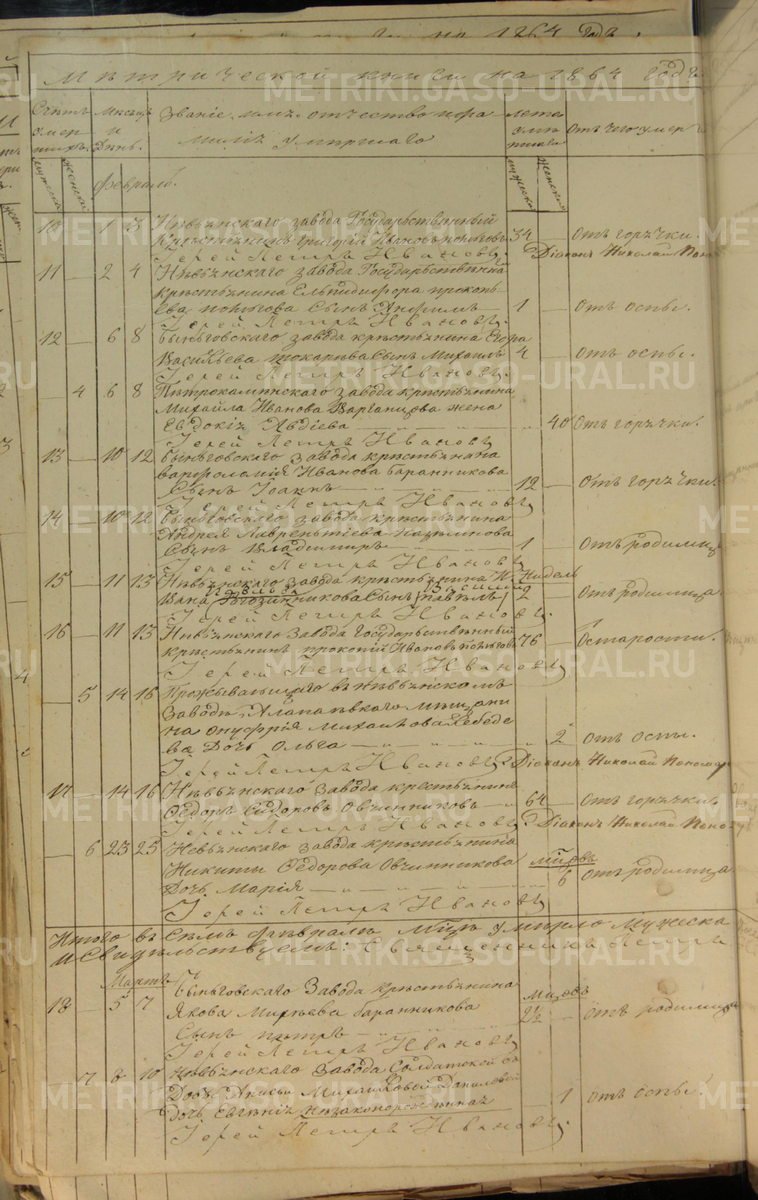 на 1864 годъ.
Метрической книги на 1864 годъ
Счетъ умершихъ.
Мужеска
Женска
Мѣсяцъ и День.
Званіе, имя, отчество и фамилія умершаго
Лета умершаго
Мужеска
Женска
Отъ чего умеръ
Февраль.
10 — 1 3 Невьянскаго завода Государственный
крестьянинъ Григорій Ивановъ 34 — Отъ горячки.
Іерей Петръ Ивановъ. Діаконъ Николай Поно
11 — 2 4 Невьянскаго завода Государственна
крестьянина Елпидифора Прокопь
ева Сынъ 1 — Отъ оспы.
Іерей Петръ Ивановъ.
12 — 6 8 Быньговскаго завода крестьянина Егора
Васильева Токарева Сынъ Михаилъ 4 — отъ оспы.
Іерей Петръ Ивановъ.
— 4 6 8 Петрокаменскаго завода крестьянина
Михайла Иванова Варганцова жена
Евдокія Авдіева — 40 Отъ горячки.
Іерей Петръ Ивановъ
13 — 10 12 Быньговскаго завода крестьянина
Варфоломія Иванова Баранникова
Сынъ Іоаннъ 12 — Отъ горячки.
Іерей Петръ Ивановъ
14 — 10 12 Быньговскаго завода крестьянина
Андрея Лаврентьева
Сынъ Владимиръ 1 — Отъ родимца
Іерей Петръ Ивановъ
15 — 11 13 Невьянскаго завода крестьянина И
вана Сынъ Павелъ Недель 2 — Отъ родимца.
Іерей Петръ Ивановъ.
16 — 11 13 Невьянскаго завода Государственный
крестьянинъ Прокопій Ивановъ 76 — Отъ старости.
Іерей Петръ Ивановъ
— 5 14 16 Проживающаго въ Невьянскомъ
заводѣ Алапаевскаго мещани
на Онуфрія Михайлова Лебеде
ва Дочь Ольга — 2 Отъ оспы.
Іерей Петръ Ивановъ. Діаконъ Николай Пономар
17 — 14 16 Невьянскаго завода крестьянинъ
Ѳедоръ Ѳедоровъ Овчинниковъ 64 — Отъ горячки
Іерей Петръ Ивановъ Діаконъ Николай Поно
— 6 23 25 Невьянскаго завода крестьянина
Никиты Ѳедорова Овчинникова
Дочь Марія — Мѣсяц. 6 Отъ родимца
Іерей Петръ Ивановъ
Итого въ семъ Февралѣ Мцѣ умерло Мужеска
и Свидѣтельствуемъ: Священникъ Петръ
Мартъ
18 — 5 7 Быньговскаго завода крестьянина
Якова Баранникова
Сынъ Петръ Мцовъ 2½ — Отъ родимца
Іерей Петръ Ивановъ
— 7 8 10 Невьянскаго завода Солдатской
Михайловой Даниловой
Дочь Евгенія Незаконорожденная — 1 Отъ оспы.
Іерей Петръ Ивановъ.
METRIKI.GASO-URAL.RU